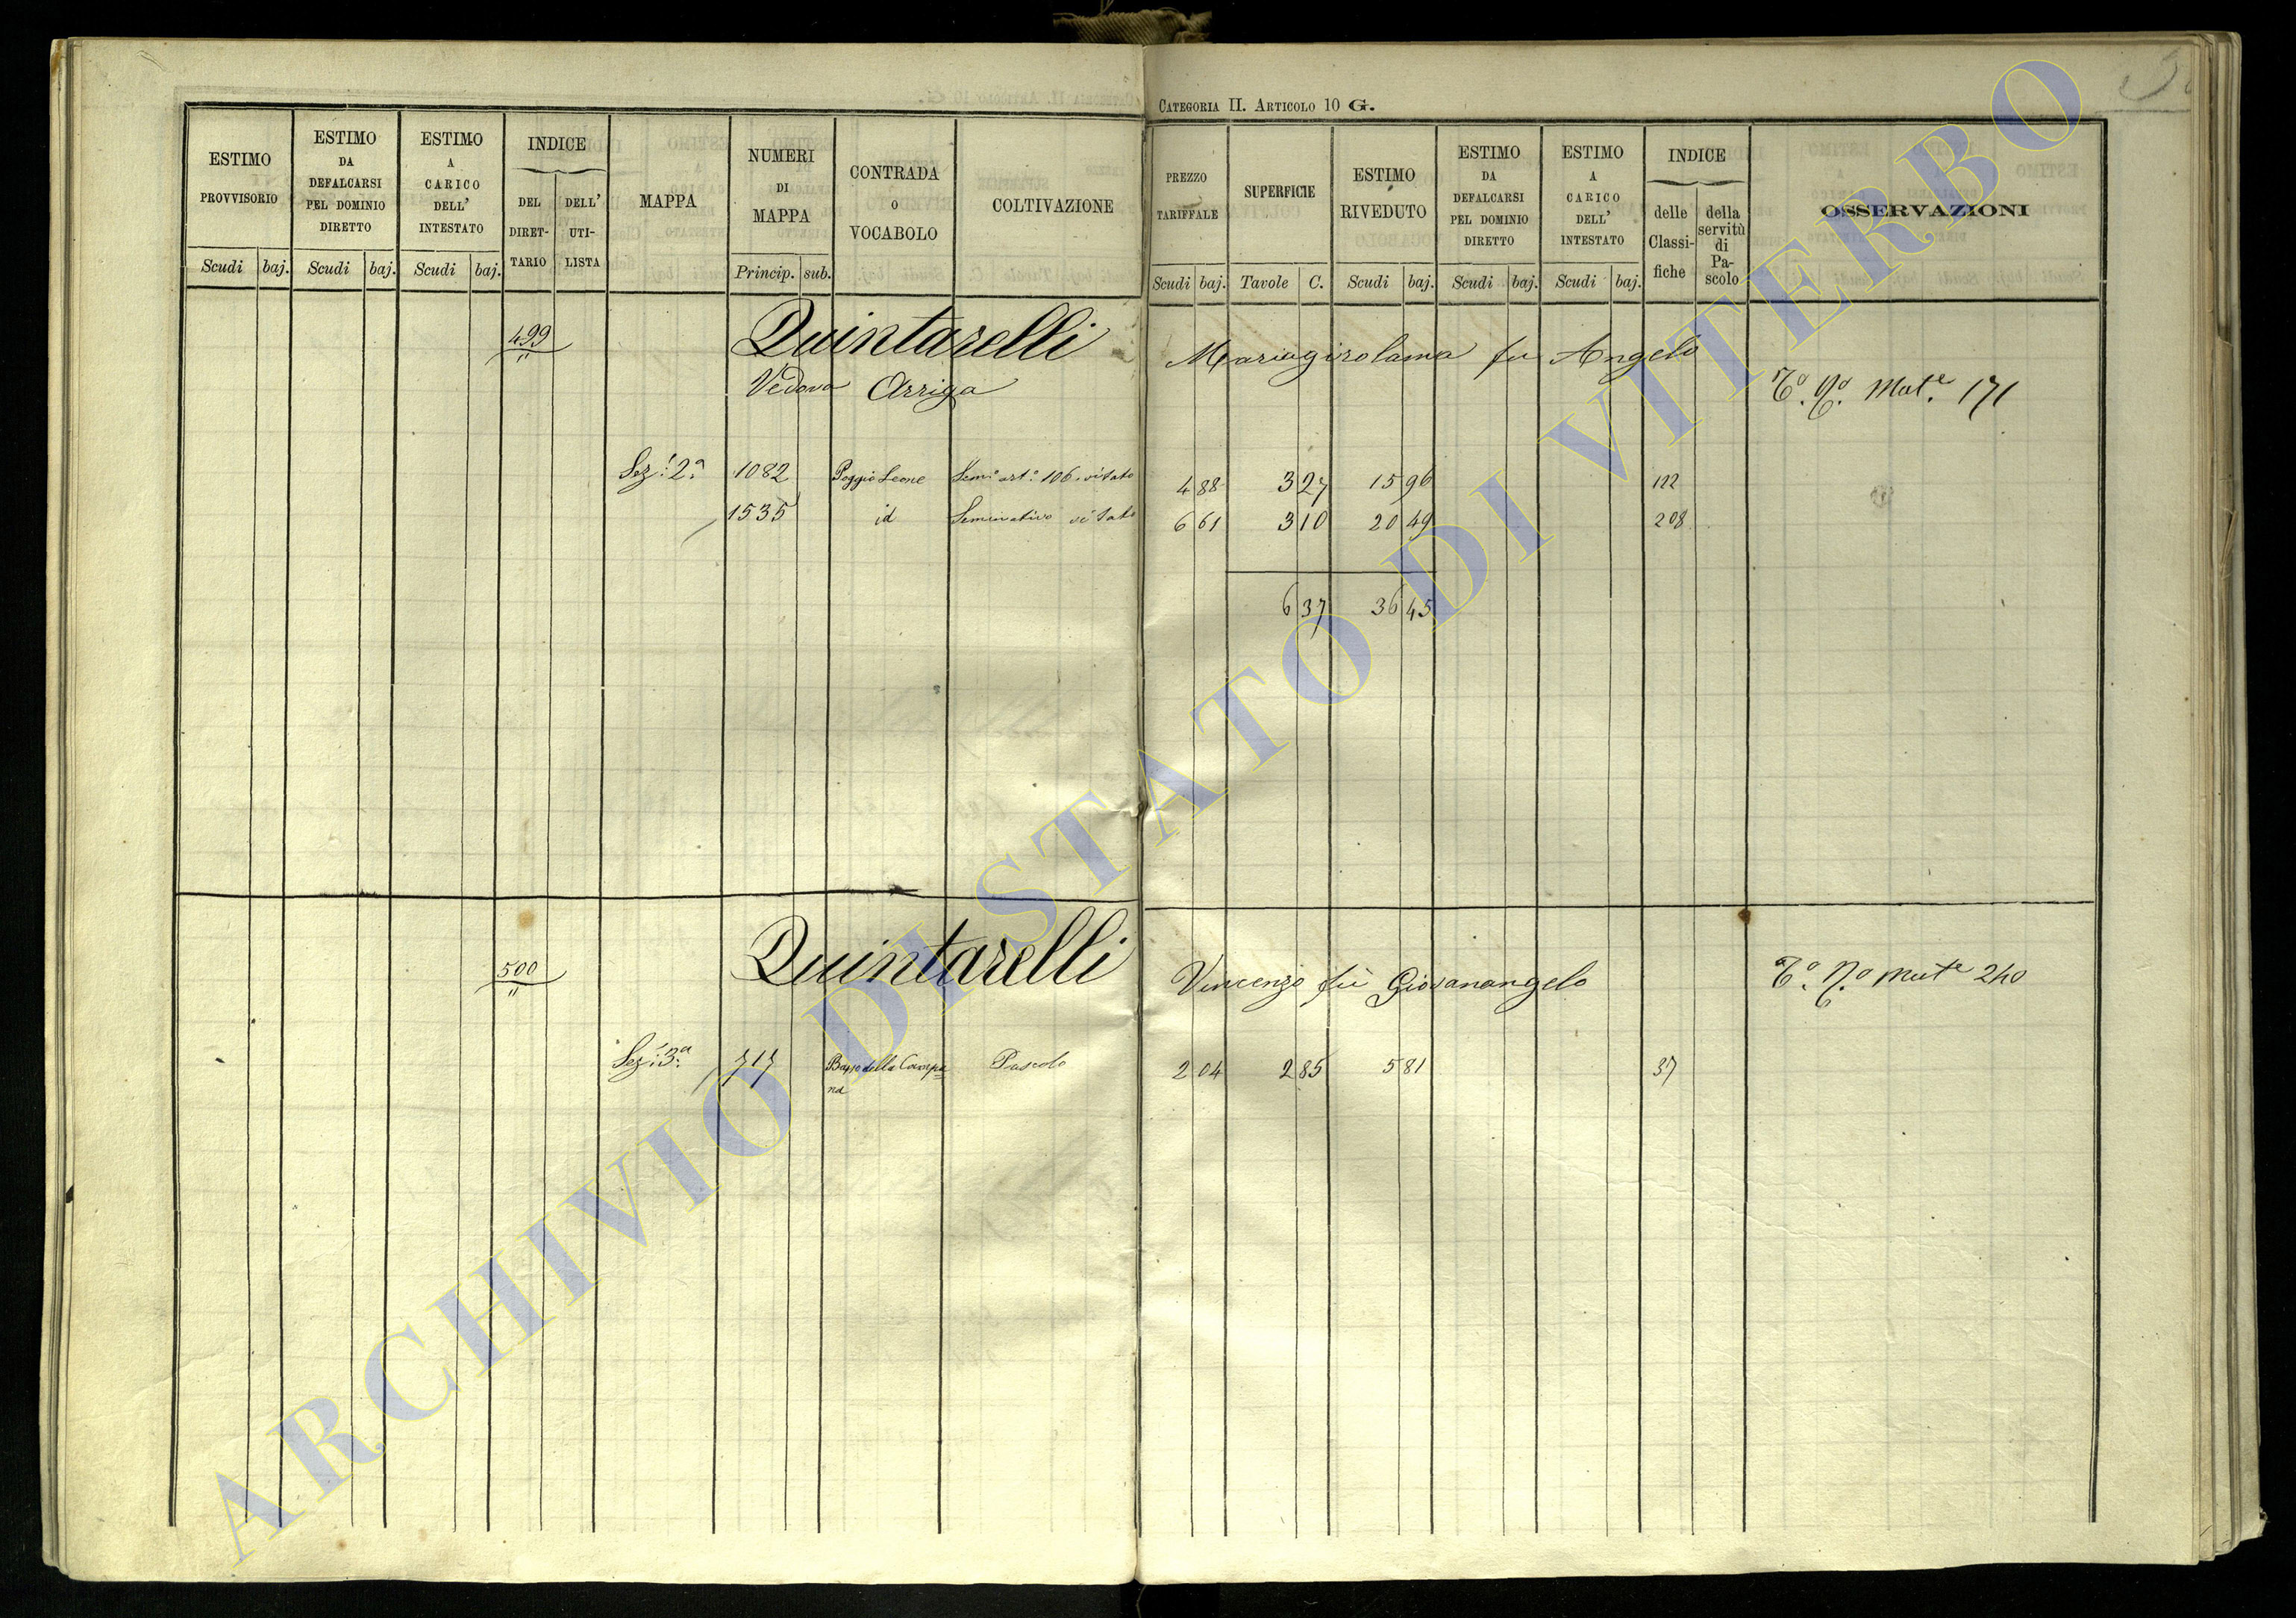 CATEGORIA II. ARTICOLO 10 G.
ESTIMO PROVVISORIO
ESTIMO DA DEFALCARSI PEL DOMINIO DIRETTO
ESTIMO A CARICO DELL' INTESTATO
INDICE
DEL DIRET-TARIO
DELL' UTI-LISTA
MAPPA
NUMERI DI MAPPA
CONTRADA O VOCABOLO
COLTIVAZIONE
PREZZO TARIFFALE
SUPERFICIE
ESTIMO RIVEDUTO
ESTIMO DA DEFALCARSI PEL DOMINIO DIRETTO
ESTIMO A CARICO DELL' INTESTATO
INDICE
delle Classi-fiche
della servitù di Pa-scolo
OSSERVAZIONI
Scudi baj. Scudi baj. Scudi baj. Princip. sub. Scudi baj. Tavole C. Scudi baj. Scudi baj. Scudi baj.
499 Quintarelli Mariagirolama fu Angelo
Vedova Arriga Mut.e 171
Sez: 2a 1082 Poggio Leone Semo art: 106. vitato 4 88 3 27 15 96 122
1535 id Seminativo vitato 6 61 3 10 20 49 208
6 37 36 45
500 Quintarelli Vincenzo fù Giovanangelo Mut.e 240
Sez: 3a 717 Basso della Campa= Pascolo 2 04 2 85 5 81 37
na
ARCHIVIO DI STATO DI VITERBO